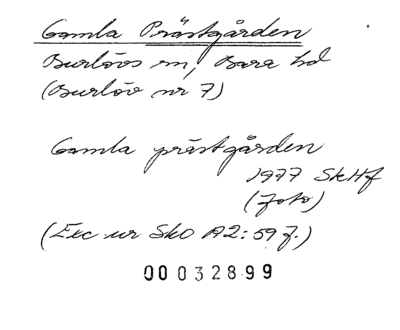 Gamla Prästgården
Burlövs sn, Bara hd
(Burlöv nr 7)
Gamla prästgården
1977 SkHf
(foto)
(Exc ur SkO A2:59 f.)
00032899